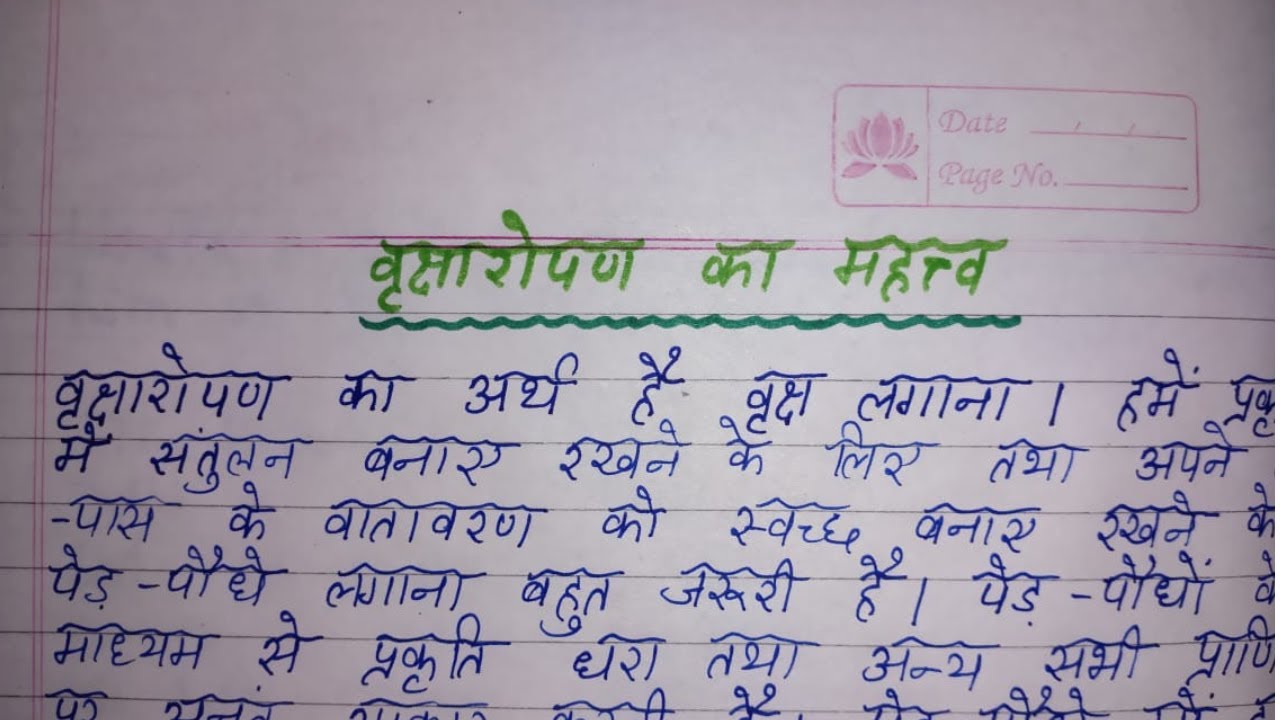 Date
Page No.
वृक्षारोपण का महत्त्व
वृक्षारोपण का अर्थ है वृक्ष लगाना । हमें
में संतुलन बनाए रखने के लिए तथा अपने
-पास के वातावरण को स्वच्छ बनाए रखने के
पेड़ -पौधे लगाना बहुत जरूरी है । पेड़ -पौधों
माध्यम से प्रकृति धरा तथा अन्य सभी